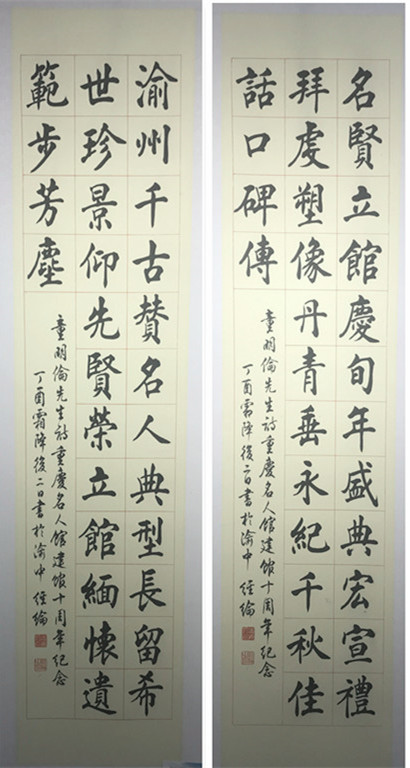 名賢立館慶旬年盛典宏宣禮
拜虔塑像丹青垂永紀千秋佳
話口碑傳
童明倫先生詩重慶名人館建館十周年紀念
丁酉霜降後二日書於渝中 經綸
渝州千古贊名人典型長留希
世珍景仰先賢榮立館緬懷遺
範步芳塵
童明倫先生詩重慶名人館建館十周年紀念
丁酉霜降後二日書於渝中 經綸